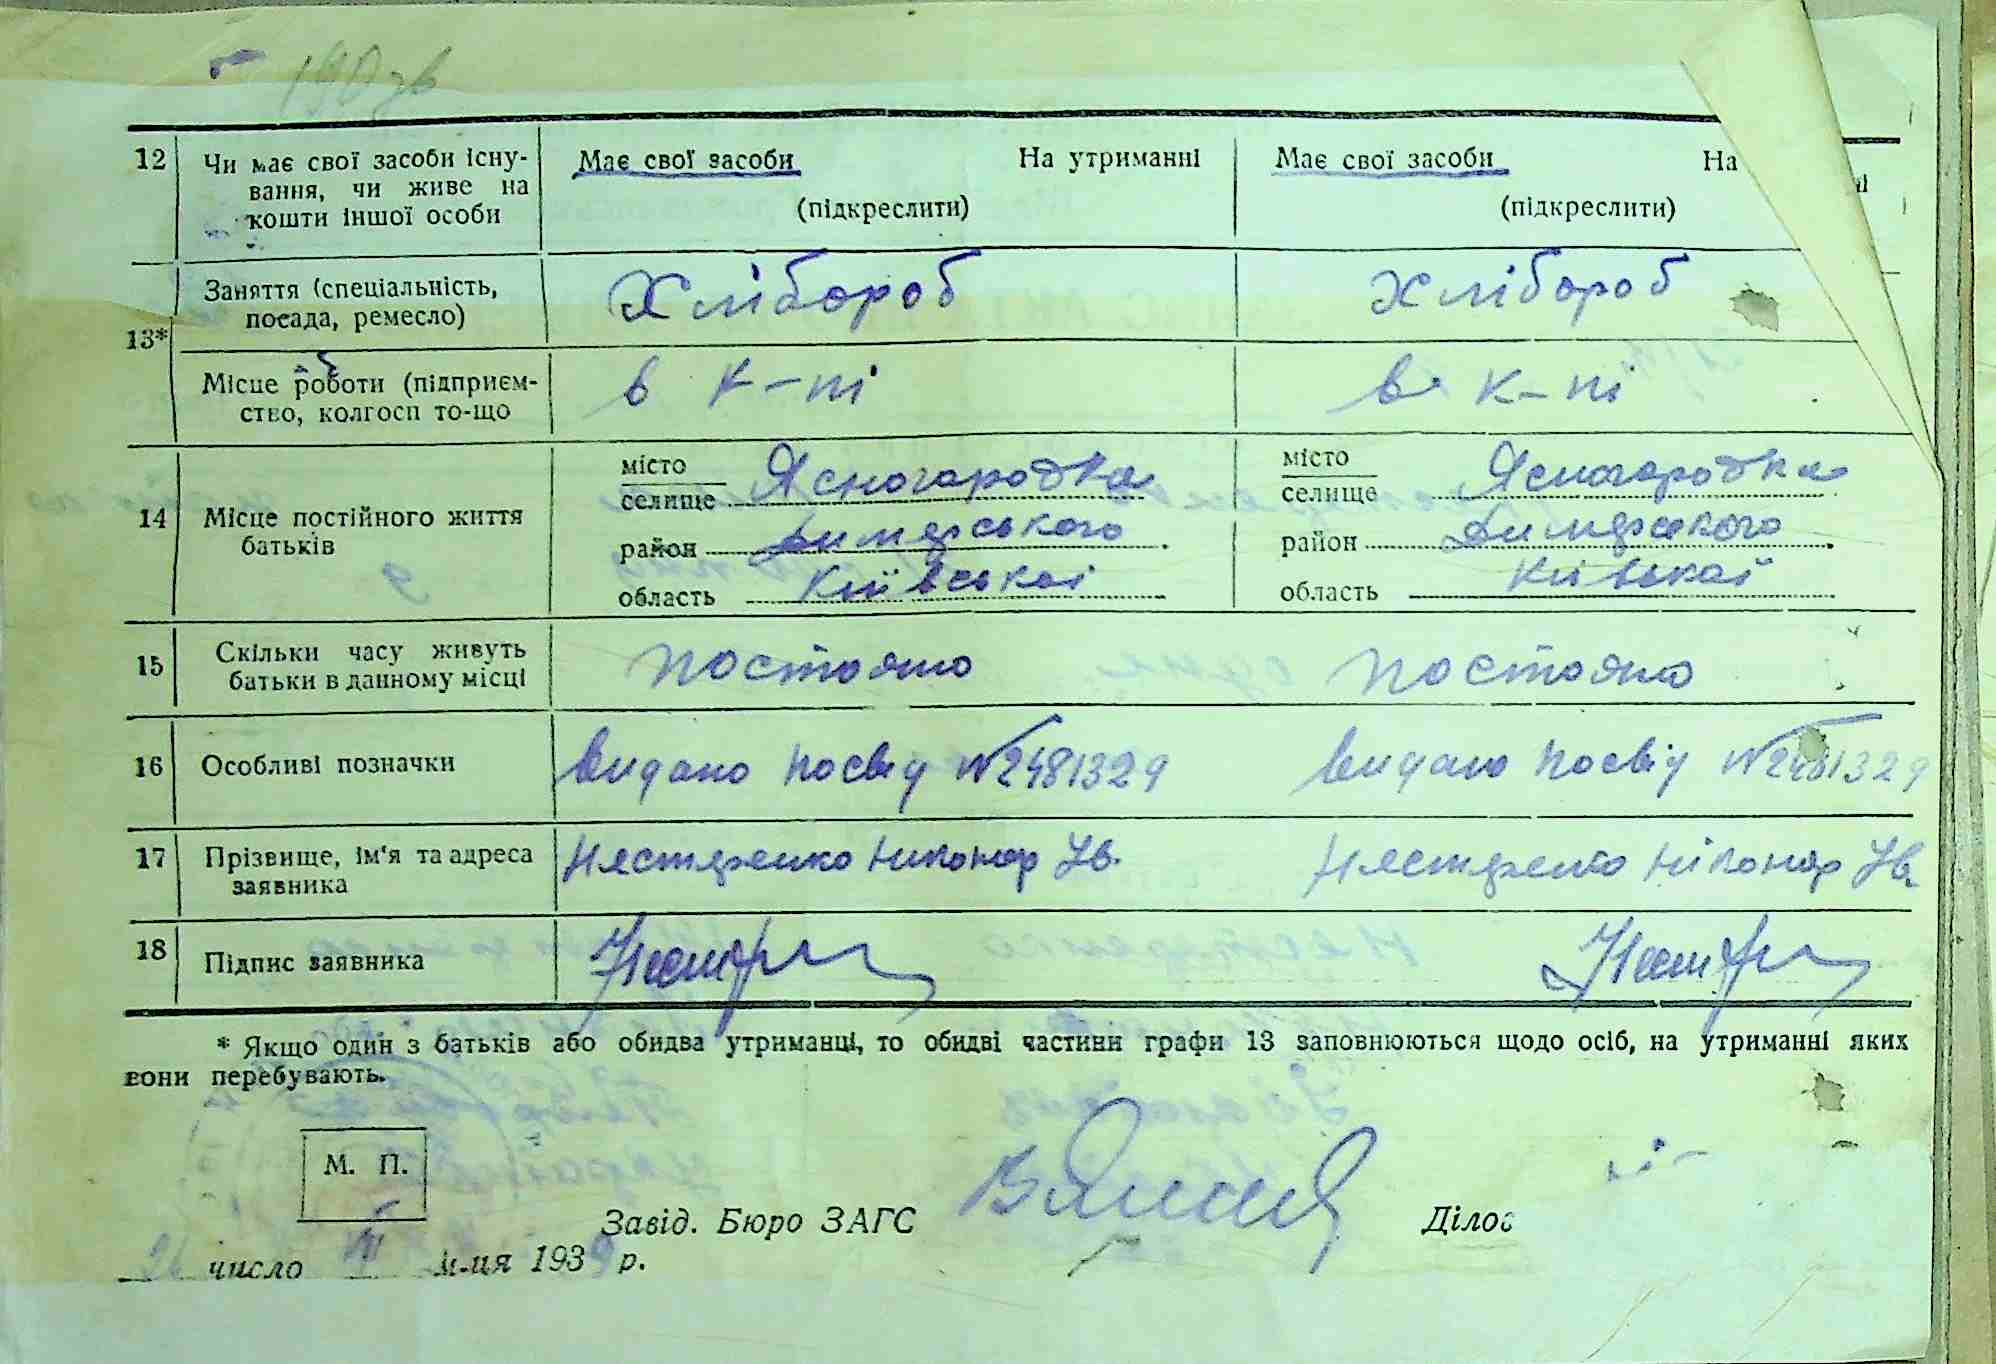 190 зв
12 Чи має свої засоби існу-
вання, чи живе на
кошти іншої особи
Має свої засоби На утриманні
(підкреслити)
Має свої засоби На
(підкреслити)
13* Заняття (спеціальність,
посада, ремесло)
Хлібороб
Хлібороб
Місце роботи (підприєм-
ство, колгосп то-що
в к-пі
в к-пі
14 Місце постійного життя
батьків
місто
селище Ясногородка
район Димерського
область Київськоі
місто
селище Ясногородка
район Димерского
область Київскоі
15 Скільки часу живуть
батьки в данному місці
постояно
постояно
16 Особливі позначки
Видано посвід №2481329
Видано посвід №2481329
17 Прізвище, ім'я та адреса
заявника
Нестеренко Никонор Ів.
Нестеренко Ніконор Ів.
18 Підпис заявника
* Якщо один з батьків або обидва утриманці, то обидві частини графи 13 заповнюються щодо осіб, на утриманні яких
вони перебувають.
М. П.
Завід. Бюро ЗАГС
Діло
число ІІІ м-ця 1939 р.